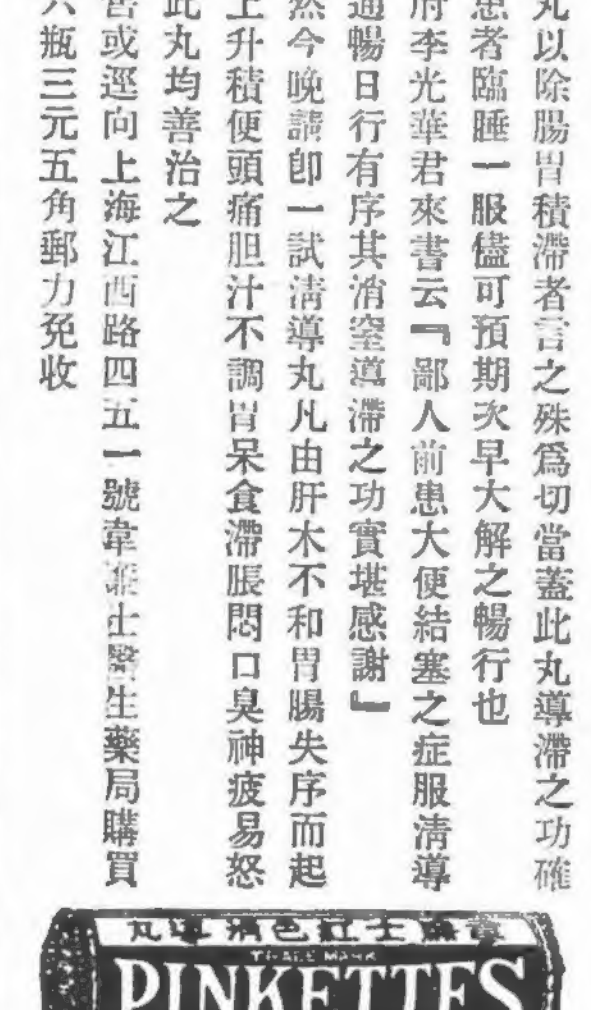 丸以除腸胃積滯者言之殊爲切當蓋此丸導滯之功確
患者臨睡一服儘可預期次早大解之暢行也
府李光華君來書云『鄙人前患大便結塞之症服淸導
通暢日行有序其消窒導滯之功實堪感謝』
然今晚請卽一試淸導丸凡由肝木不和胃腸失序而起
上升積便頭痛胆汁不調胃呆食滯脹悶口臭神疲易怒
此丸均善治之
售或逕向上海江西路四五一號韋廉士醫生藥局購買
六瓶三元五角郵力免收
韋廉士紅色淸導丸
TRADE MARK
PINKETTES